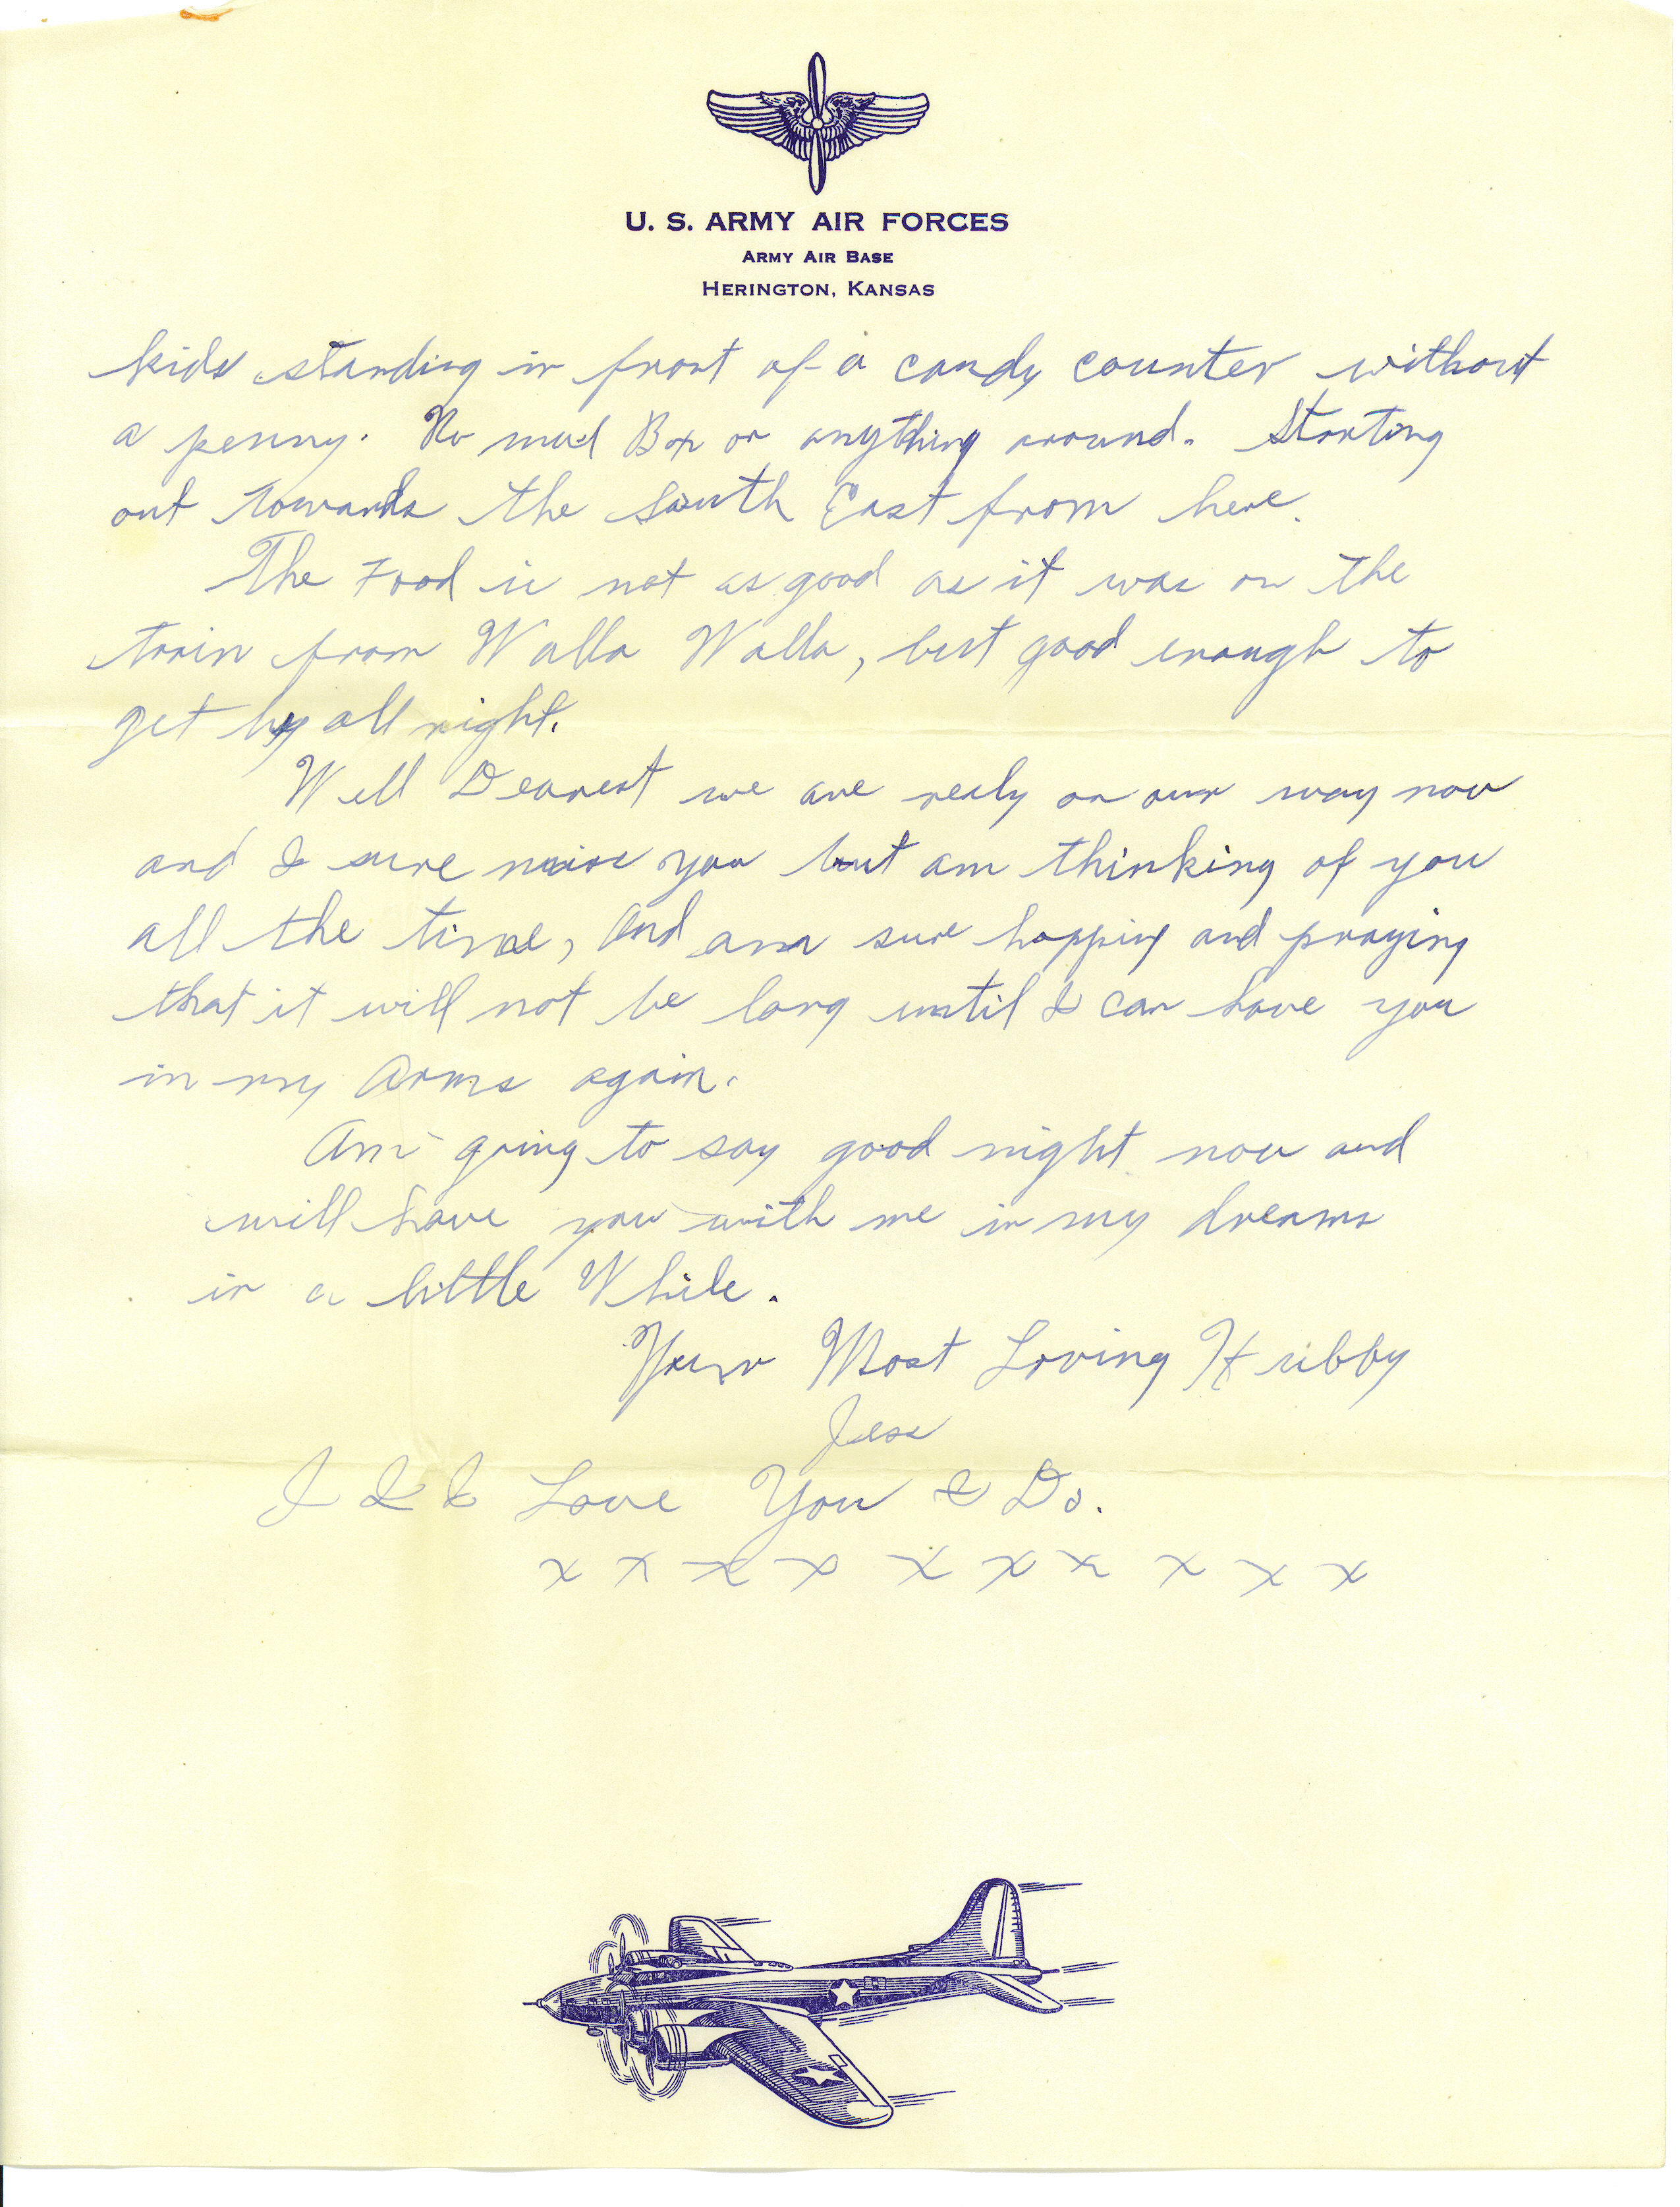 U. S. ARMY AIR FORCES
ARMY AIR BASE
HERINGTON, KANSAS
kids standing in front of a candy counter without
a penny. No mail Box or anything around. Starting
out towards the South East from here.
The Food is not as good as it was on the
train from Walla Walla, but good enough to
get by all right.
Well Dearest we are realy on our way now
and I sure miss you but am thinking of you
all the time, And am sure hopping and praying
that it will not be long until I can have you
in my Arms again.
Am going to say good night now and
will have you with me in my dreams
in a little While.
Your Most Loving Hubby
Jess
I I I Love You I Do.
x x x x x x x x x x